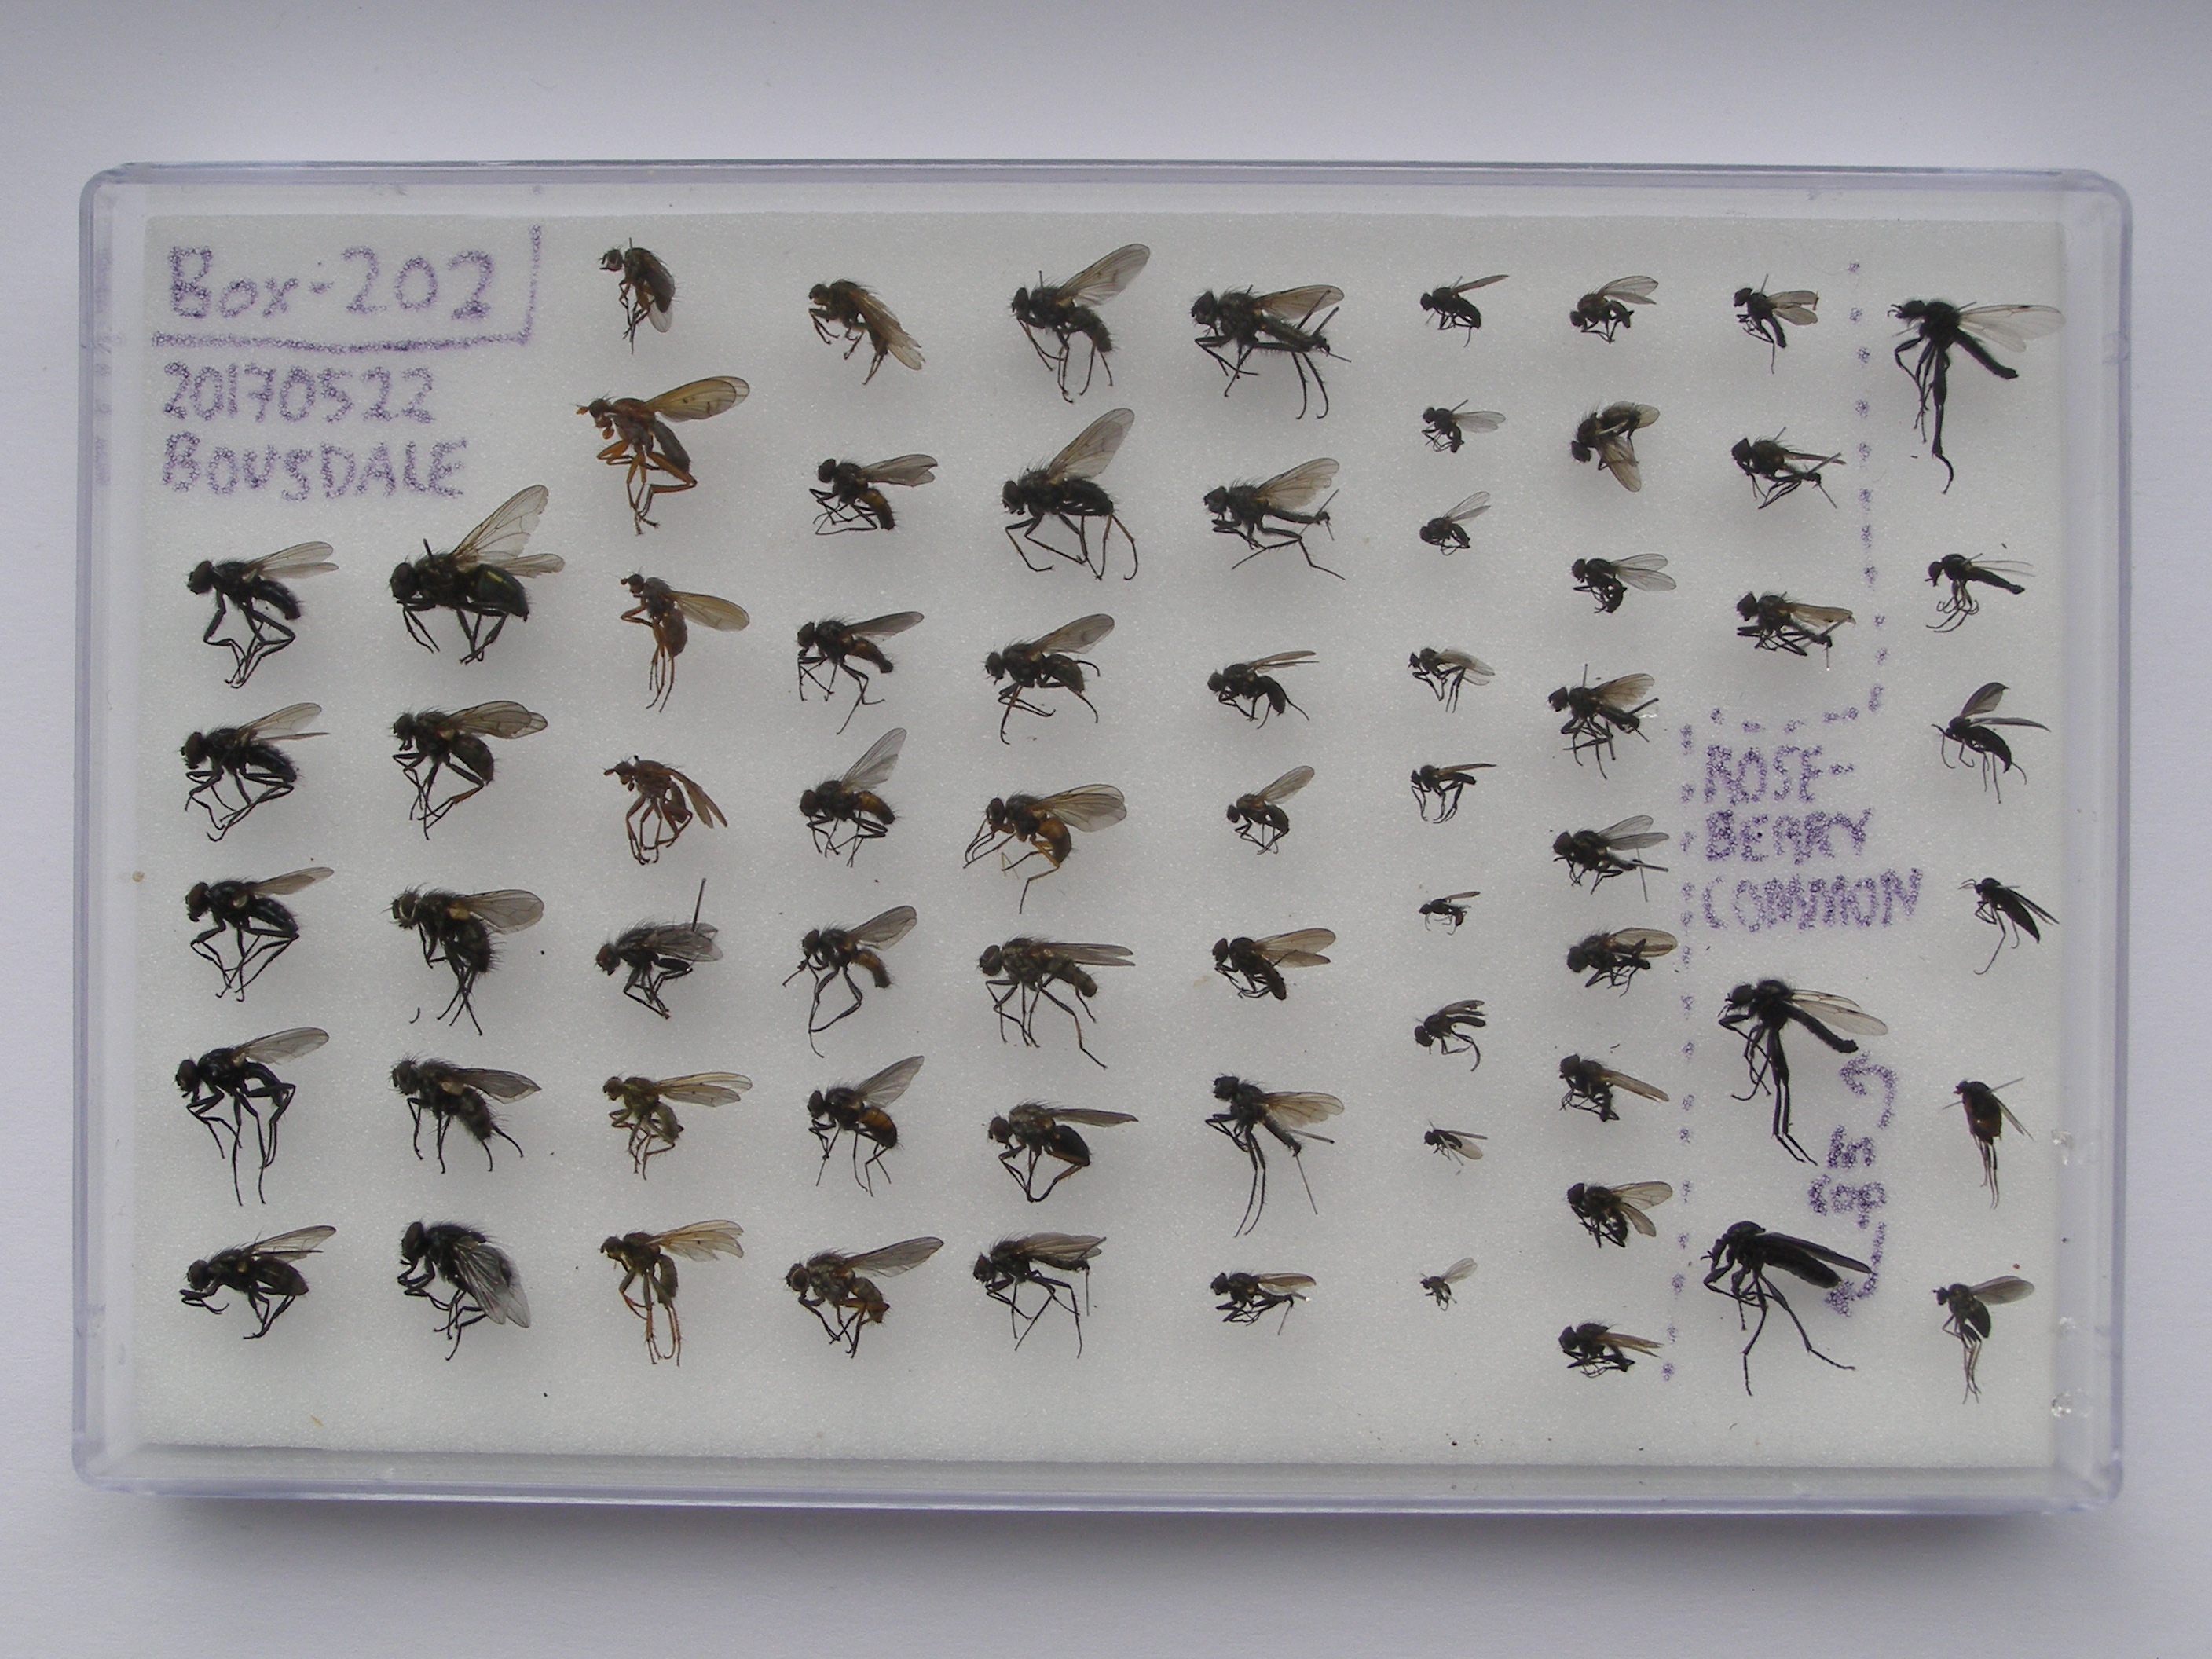 Box-202
20170522
BOUSDALE
ROSE-
BERRY
COMMON